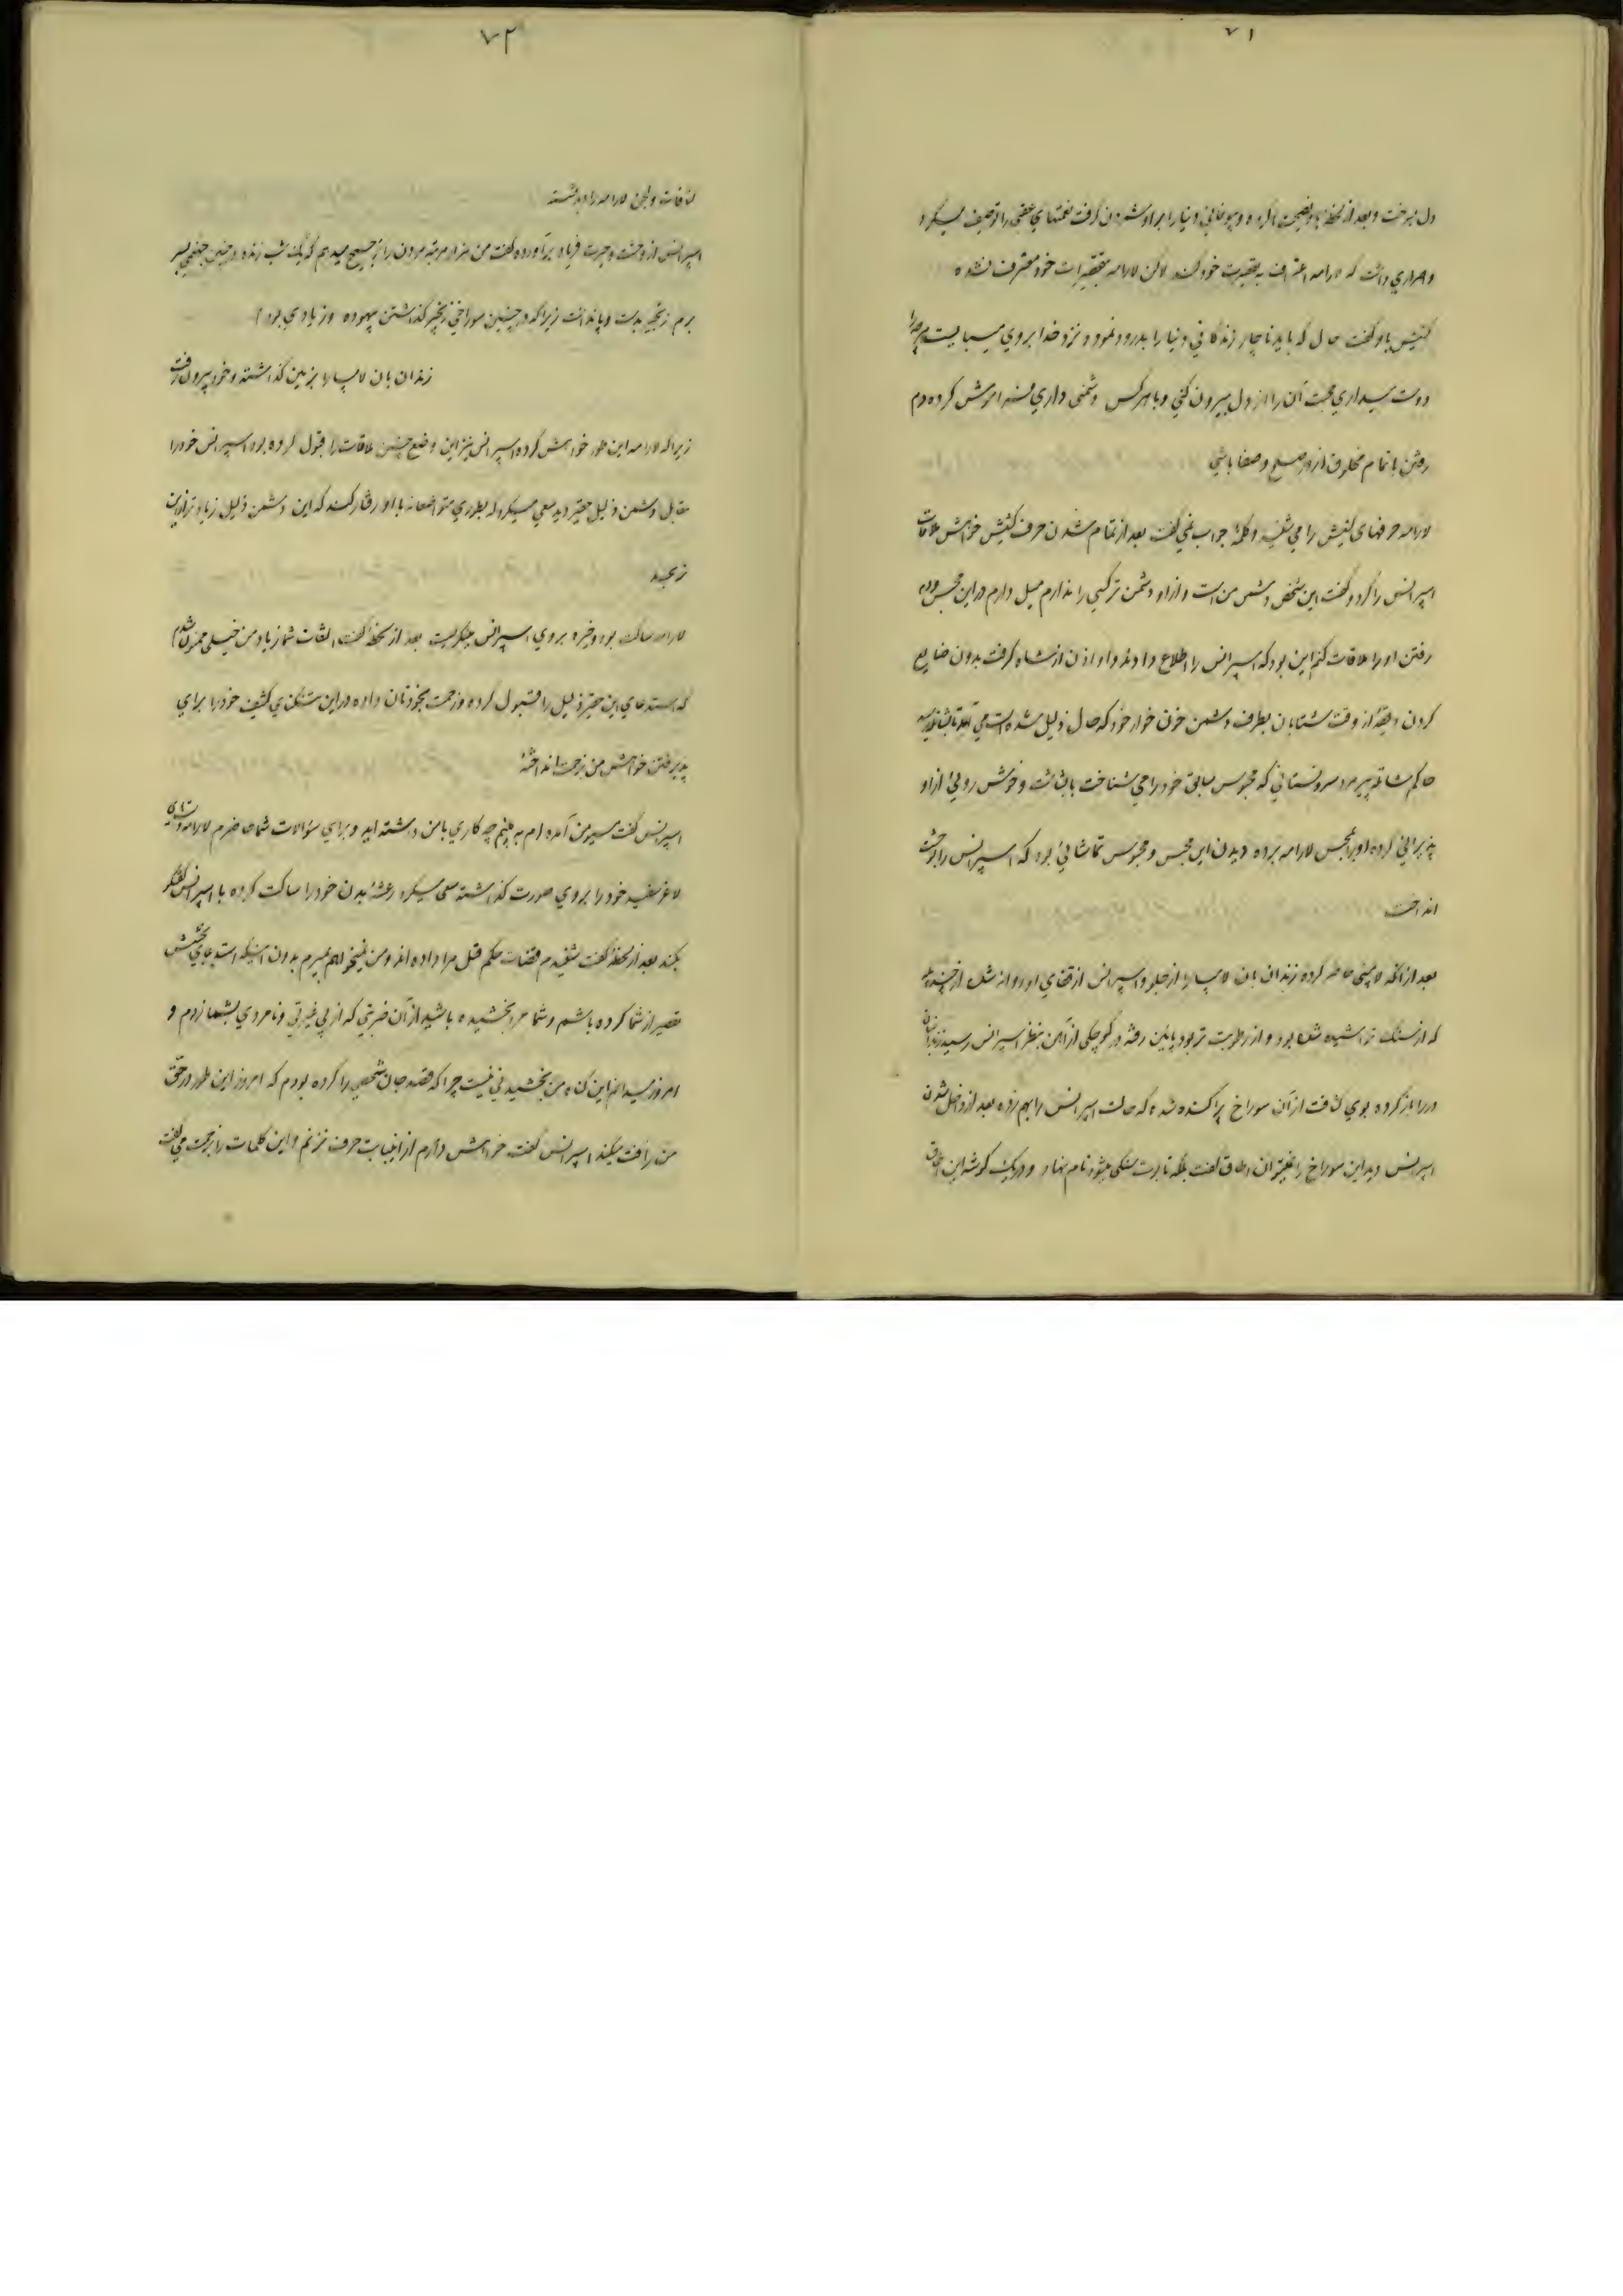 ۷۱
دل بسوخت و بعد از لحظهٔ باو نصیحت کرده و بیوفائی دنیا را براو شمردن گرفت نعمتهای عقبی را توصیف میکرد
و اصراری داشت که لارامه اعتراف به تقصیرات خود کند لاکن لارامه بتقصیرات خود معترف نشده
کشیش باو گفت حال که باید ناچار زندگانی دنیا را بدرود نمود و نزد خدا بروی میبایست هرچه را
دوست میداری محبت آن را از دل بیرون کنی و با هرکس دشمنی داری فراموش کرده دم
رفتن با تمام مخلوق از در صلح و صفا باشی
لارامه حرفهای کشیش را می شنید و کلمهٔ جواب نمی گفت بعد از تمام شدن حرف کشیش خواهش ملاقات
اسپرانس را کرد و گفت این شخص دشمن من است و از او دشمن تر کسی را ندارم میل دارم در این محبس دم
رفتن او را ملاقات کنم این بود که اسپرانس را اطلاع دادند و او اذن از شاه گرفت بدون ضایع
کردن دقیقهٔ از وقت شتابان بطرف دشمن خون خوار خود که حال ذلیل شده است می آمد تا بشاتله رسید
حاکم شاتله پیر مرد سروستانی که محبوس سابق خود را می شناخت با بشاشت و خوش روئی از او
پذیرائی کرده او را بمحبس لارامه برده دیدن این محبس و محبوس تماشائی بود که اسپرانس را بوحشت
انداخت
بعد از آنکه لامپی حاضر کرده زندان بان لامپا را از جلو و اسپرانس از قفای او روانه شده از چند پله
که از سنگ تراشیده شده بود و از رطوبت تر بود پایین رفته در کوچکی از آهن بنظر اسپرانس رسید زندانبان
در را باز کرده بوی کثافت از آن سوراخ پراکنده شده که حالت اسپرانس را بهم زده بعد از داخل شدن
اسپرانس دید این سوراخ را نمیتوان اطاق گفت بلکه تابوت سنگی میشود نام نهاد و در یک گوشه این اطاق
۷۲
کثافات و لجن لارامه را دید نشسته
اسپرانس از وحشت و حیرت فریاد برآورده گفت من هزار مرتبه مردن را ترجیح میدهم که یک شب زنده در چنین جهنمی بسر
برم زنجیر بدست و پا نداشت زیرا که در چنین سوراخی زنجیر گذاشتن بیهوده و زیادی بود
زندان بان لامپا را بزمین گذاشته و خود بیرون رفت
زیرا که لارامه این طور خواهش کرده اسپرانس نیز این وضع چنین ملاقات را قبول کرده بود اسپرانس خود را
مقابل دشمن ذلیل حقیر دید سعی میکرد که بطوری متواضعانه با او رفتار کند که این دشمن ذلیل زیاد تر از این
نرنجد
لارامه ساکت بود و خیره بروی اسپرانس مینگریست بعد از لحظهٔ گفت التفات شما زیاد من خیلی ممنون شدم
که استدعای این حقیر ذلیل را قبول کرده و زحمت بخودتان داده در این تنگنای کثیف خود را برای
پذیرفتن خواهش من بزحمت انداخته
اسپرانس گفت مسیو من آمده ام به بینم چه کاری با من داشته اید و برای سؤالات شما حاضرم لارامه دستهای
لاغر سفید خود را بروی صورت گذاشته سعی میکرد رعشهٔ بدن خود را ساکت کرده با اسپرانس گفتگو
بکند بعد از لحظهٔ گفت شنیدم قضات حکم قتل مرا داده اند و من نمیخواهم بمیرم بدون اینکه استدعای بخشش
تقصیر از شما کرده باشم و شما مرا بخشیده باشید از آن ضربتی که از بی غیرتی و نامردی بشما زدم و
امروز میدانم این گناه من بخشیدنی نیست چرا که قصد جان شخصی را کرده بودم که امروز این طور در حق
من رأفت میکند اسپرانس گفت خواهش دارم از اینبابت حرف نزنیم و این کلمات را بزحمت می گفت